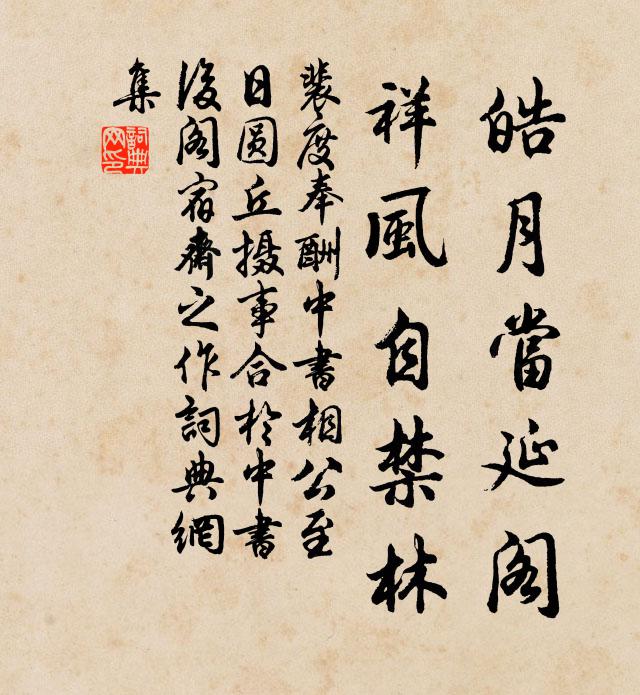 皓月當延阁
祥風自禁林
裴度奉酬中書相公至
日圆丘摄事合於中書
後阁宿齋之作詞典網
集
詞典
网印